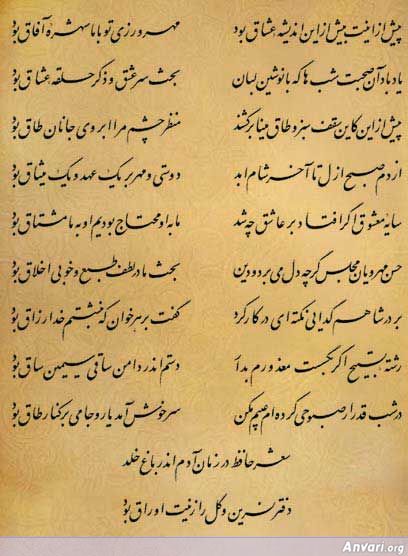 پیش ازینت بیش ازین اندیشه عشاق بود مهرورزی تو با ما شهره آفاق بود
یاد باد آن صحبت شب ها که با نوشین لبان بحث سر عشق و ذکر حلقه عشاق بود
پیش از این کاین سقف سبز و طاق مینا برکشند منظر چشم مرا ابروی جانان طاق بود
از دم صبح ازل تا آخر شام ابد دوستی و مهر بر یک عهد و یک میثاق بود
سایه معشوق گر افتاد بر عاشق چه شد ما به او محتاج بودیم او به ما مشتاق بود
حسن مهرویان مجلس گرچه دل می برد و دین بحث ما در لطف طبع و خوبی اخلاق بود
بر در شاهم گدایی نکته ای در کار کرد گفت بر هر خوان که بنشستم خدا رزاق بود
رشته تسبیح اگر بگسست معذورم بدار دستم اندر دامن ساقی سیمین ساق بود
در شب قدر ار صبوحی کرده ام عیبم مکن سرخوش آمد یار و جامی بر کنار طاق بود
شعر حافظ در زمان آدم اندر باغ خلد
دفتر نسرین و گل را زینت اوراق بود
Anvari.org